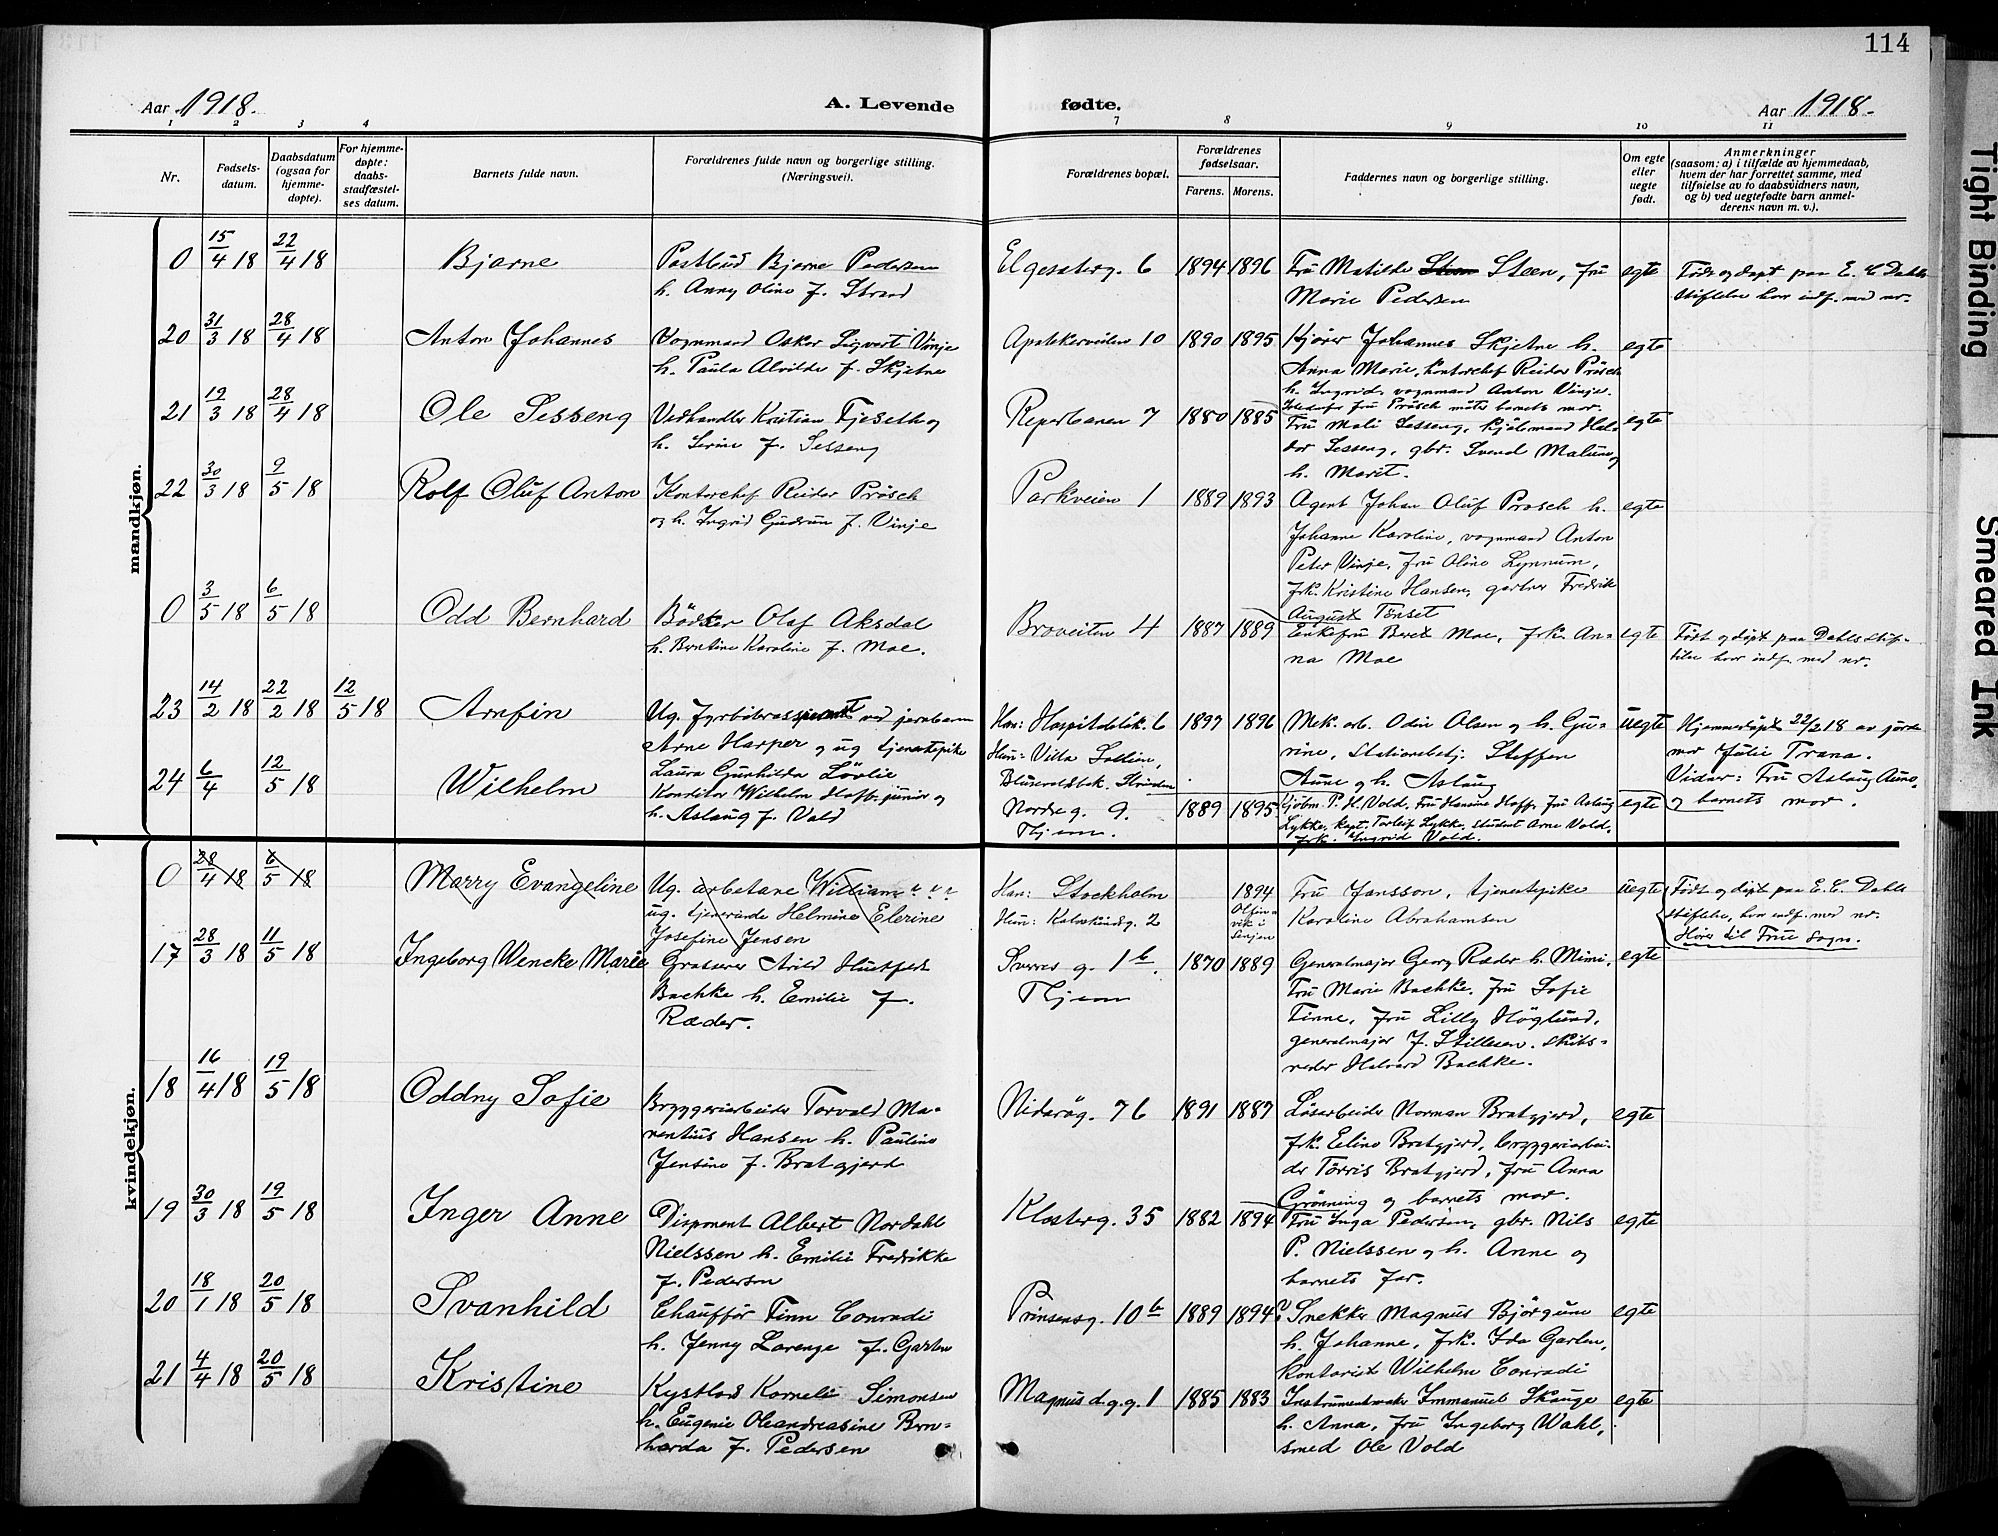 114
Aar 1918.
A. Levende
fødte.
Aar 1918.
1 2 3 4 7 8 9 10 11
Nr.
Fødsels-
datum.
Daabsdatum
(ogsaa for
hjemme-
døpte).
For hjemme-
døpte:
daabs-
stadfæstel-
ses datum.
Barnets fulde navn.
Forældrenes fulde navn og borgerlige stilling.
(Næringsvei).
Forældrenes bopæl.
Forældrenes
fødselsaar.
Farens. Morens.
Faddernes navn og borgerlige stilling.
Om egte
eller
uegte
født.
Anmerkninger
(saasom: a) i tilfælde av hjemmedaab,
hvem der har forrettet samme, med
tilføielse av to daabsvidners navn,
og b) ved uegtefødte barn anmel-
derens navn m. v.).
mandkjøn.
0 15/4 18 22/4 18 Bjarne
Postbud Bjarne Pedersen
h. Anny Oline f. Strand
Elgesæterg. 6 1894 1896
Fru Matilde Steen, fru
Marie Pedersen
egte
Født og døpt paa E. C. Dahls
stiftelse hvor indf. med nr.
20 31/3 18 28/4 18 Anton Johannes
Vognmand Oskar Sigvart Vinje
h. Paula Alvilde f. Skjetne
Apotekerveiten 10 1890 1895
Kjører Johannes Skjetne h.
Anna Marie, kontorchef Reider Prösch
h. Ingrid, vognmand Anton Vinje.
Istedenfor fru Prösch møtte barnets mor.
egte
21 19/3 18 28/4 18 Ole Sesseng
Vedhandler Kristian Fjeseth og
h. Serine f. Sesseng
Reperbanen 7 1880 1885
Fru Mali Sesseng, kjølemand Hal-
dor Sesseng, gbr. Svend Malum og
h. Marit.
egte
22 30/3 18 9/5 18 Rolf Oluf Anton
Kontorchef Reider Prösch
og h. Ingrid Gudrun f. Vinje
Parkveien 1 1889 1893
Agent Johan Oluf Prøsch h.
Johanne Karoline, vognmand Anton
Peter Vinje, fru Oline Lynnum,
frk. Kristine Hansen, gartner Fredrik
August Tønset
egte
0 3/5 18 6/5 18 Odd Bernhard
Bödker Olaf Aksdal
h. Berntine Karoline f. Moe.
Broveiten 4 1887 1889
Enkefru Beret Moe, frk. An-
na Moe
egte
Født og døpt paa Dahls stif-
telse hvor indf. med nr.
23 14/2 18 22/2 18 12/5 18 Arnfin
Ug. fyrbøteraspirant ved jernbanen
Arne Harper og ug tjenestepike
Laura Gunhilda Lövlie
Han: Hospitalsløk. 6 1897 1896
Hun: Villa Sollien,
Blusuvoldsbak. Strinden
Mek. arb. Odin Olsen og h. Gu-
rine, stationsbetj. Steffen
Aune og h. Aslaug
uegte
Hjemmedøpt 22/2 18 av jorde-
mor Julie Trana.
Vidner: Fru Aslaug Aune
og barnets mor.
24 6/4 12/5 18 Wilhelm
Konditor Wilhelm Hoff junior og
h. Aslaug f. Vold
Nordre g. 9. 1889 1895
Thjem.
Kjøbm. P. H. Vold, Fru Hansine Hoff, fru Aslaug
Lykke, kapt. Torleif Lykke, student Arne Vold,
frk. Ingrid Vold.
egte
kvindekjøn.
0 28/4 18 6/5 18 Marry Evangeline
Ug. arbetare William " " "
ug. tjenerinde Helmine Elerine
Josefine Jensen
Han: Stockholm 1894
Hun: Kalvskindsg. 2
Fru Jansson, tjenestepike
Karoline Abrahamsen
uegte
Født og døpt paa E. C. Dahls
stiftelse, hvor indf. med nr.
Hører til Frue Sogn.
17 28/3 18 11/5 18 Ingeborg Wencke Marie
Bachke h. Emilie f.
Ræder.
Sverres g. 1b. 1870 1889
Thjem
Generalmajor Georg Ræder h. Mimi,
Fru Marie Bachke, fru Sofie
Finne, fru Lilly Höglund,
generalmajor J. Stillesen, skibs-
reder Halvard Bachke.
egte
18 16/4 18 19/5 18 Oddny Sofie
Bryggeriarbeider Torvald Ma-
rentius Hansen h. Pauline
Jensine f. Bratgjerd
Nidarög. 76 1891 1887
Løsarbeider Norman Bratgjerd,
frk. Eline Bratgjerd, bryggeriarbei-
der Törris Bratgjerd, fru Anna
Grönning og barnets mor.
egte
19 30/3 18 19/5 18 Inger Anne
Disponent Albert Nordahl
Nielssen h. Emilie Fredrikke
f. Pedersen
Klosterg. 35 1882 1894
Fru Inga Pedersen, gbr. Nils
P. Nielssen og h. Anne og
barnets far.
egte
20 18/1 18 20/5 18 Svanhild
Chauffør Finn Conradi
h. Jenny Lorenze f. Garten
Prinsensg. 10b 1889 1894
Snekker Magnus Bjørgum
h. Johanne, frk. Ida Garten,
kontorist Wilhelm Conradi
egte
21 4/4 18 20/5 18 Kristine
Kystlods Korneli Simonsen
h. Eugenie Oleandreasine Bern-
harda f. Pedersen
Magnus d. g. g. 1 1885 1883
Instrumentmaker Immanuel Skauge
h. Anna, fru Ingeborg Wahl,
smed Ole Vold
egte
Tight Binding
Smeared Ink